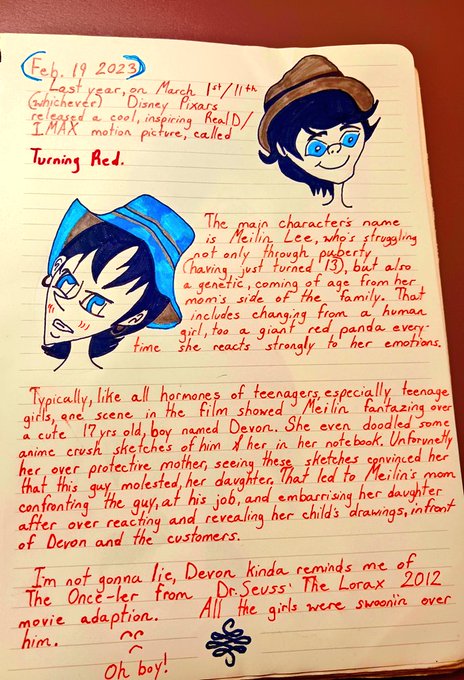 (Feb. 19 2023)
Last year, on March 1st/11th
(whichever) Disney Pixars
released a cool, inspiring RealD/
IMAX motion picture, called
Turning Red.
The main character's name
is Meilin Lee, who's struggling
not only through puberty
(having, just turned 13), but also
a genetic, coming of age from her
mom's side of the family. That
includes changing from a human
girl, too a giant red panda every-
time she reacts strongly to her emotions.
Typically, like all hormones of teenagers, especially teenage
girls, one scene in the film showed Meilin fantazing over
a cute 17 yrs old, boy named Devon. She even doodled some
anime crush sketches of him & her in her notebook. Unforunetly
her over protective mother, seeing these sketches convinced her
that this guy molested, her daughter. That led to Meilin's mom
confronting the guy, at his job, and embarrising her daughter
after over reacting and revealing her child's drawings, infront
of Devon and the customers.
I'm not gonna lie, Devon kinda reminds me of
The Once-ler from Dr. Seuss' The Lorax 2012
movie adaption. All the girls were swoonin over
him.
Oh boy!